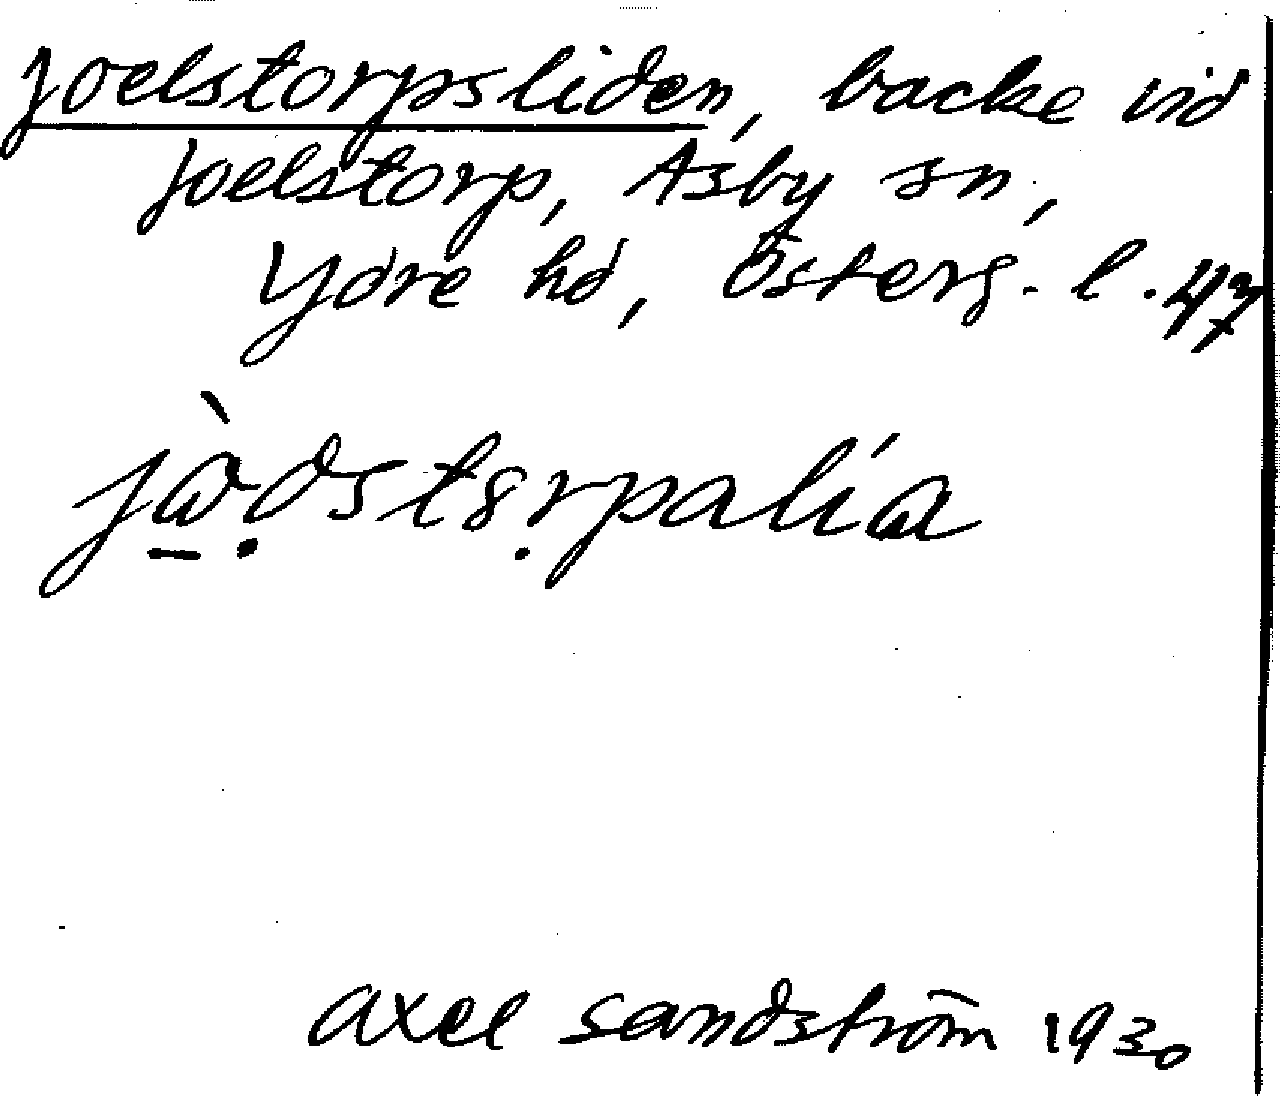 Joelstorpsliden, backe vid
Joelstorp, Asby sn,
Ydre hd, Österg. l. 47
axel sandström 1930